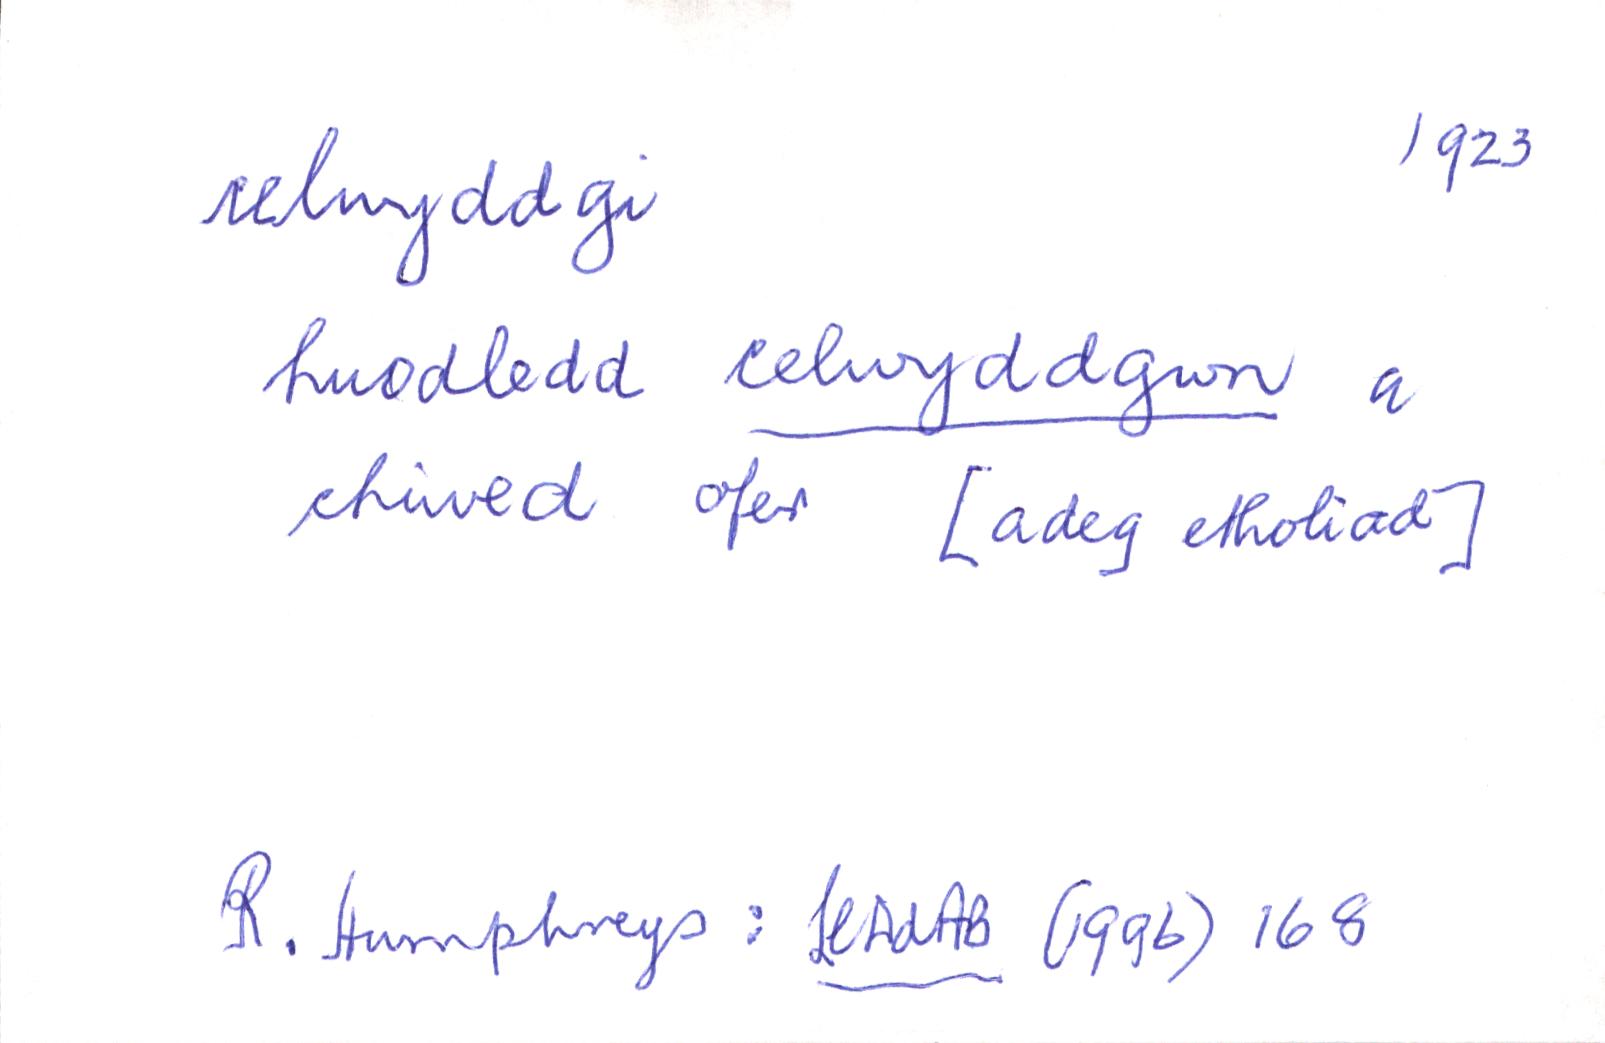 1923
celwyddgi
huodledd celwyddgwn a
chiwed ofer [adeg etholiad]
R. Humphreys: (1996) 168